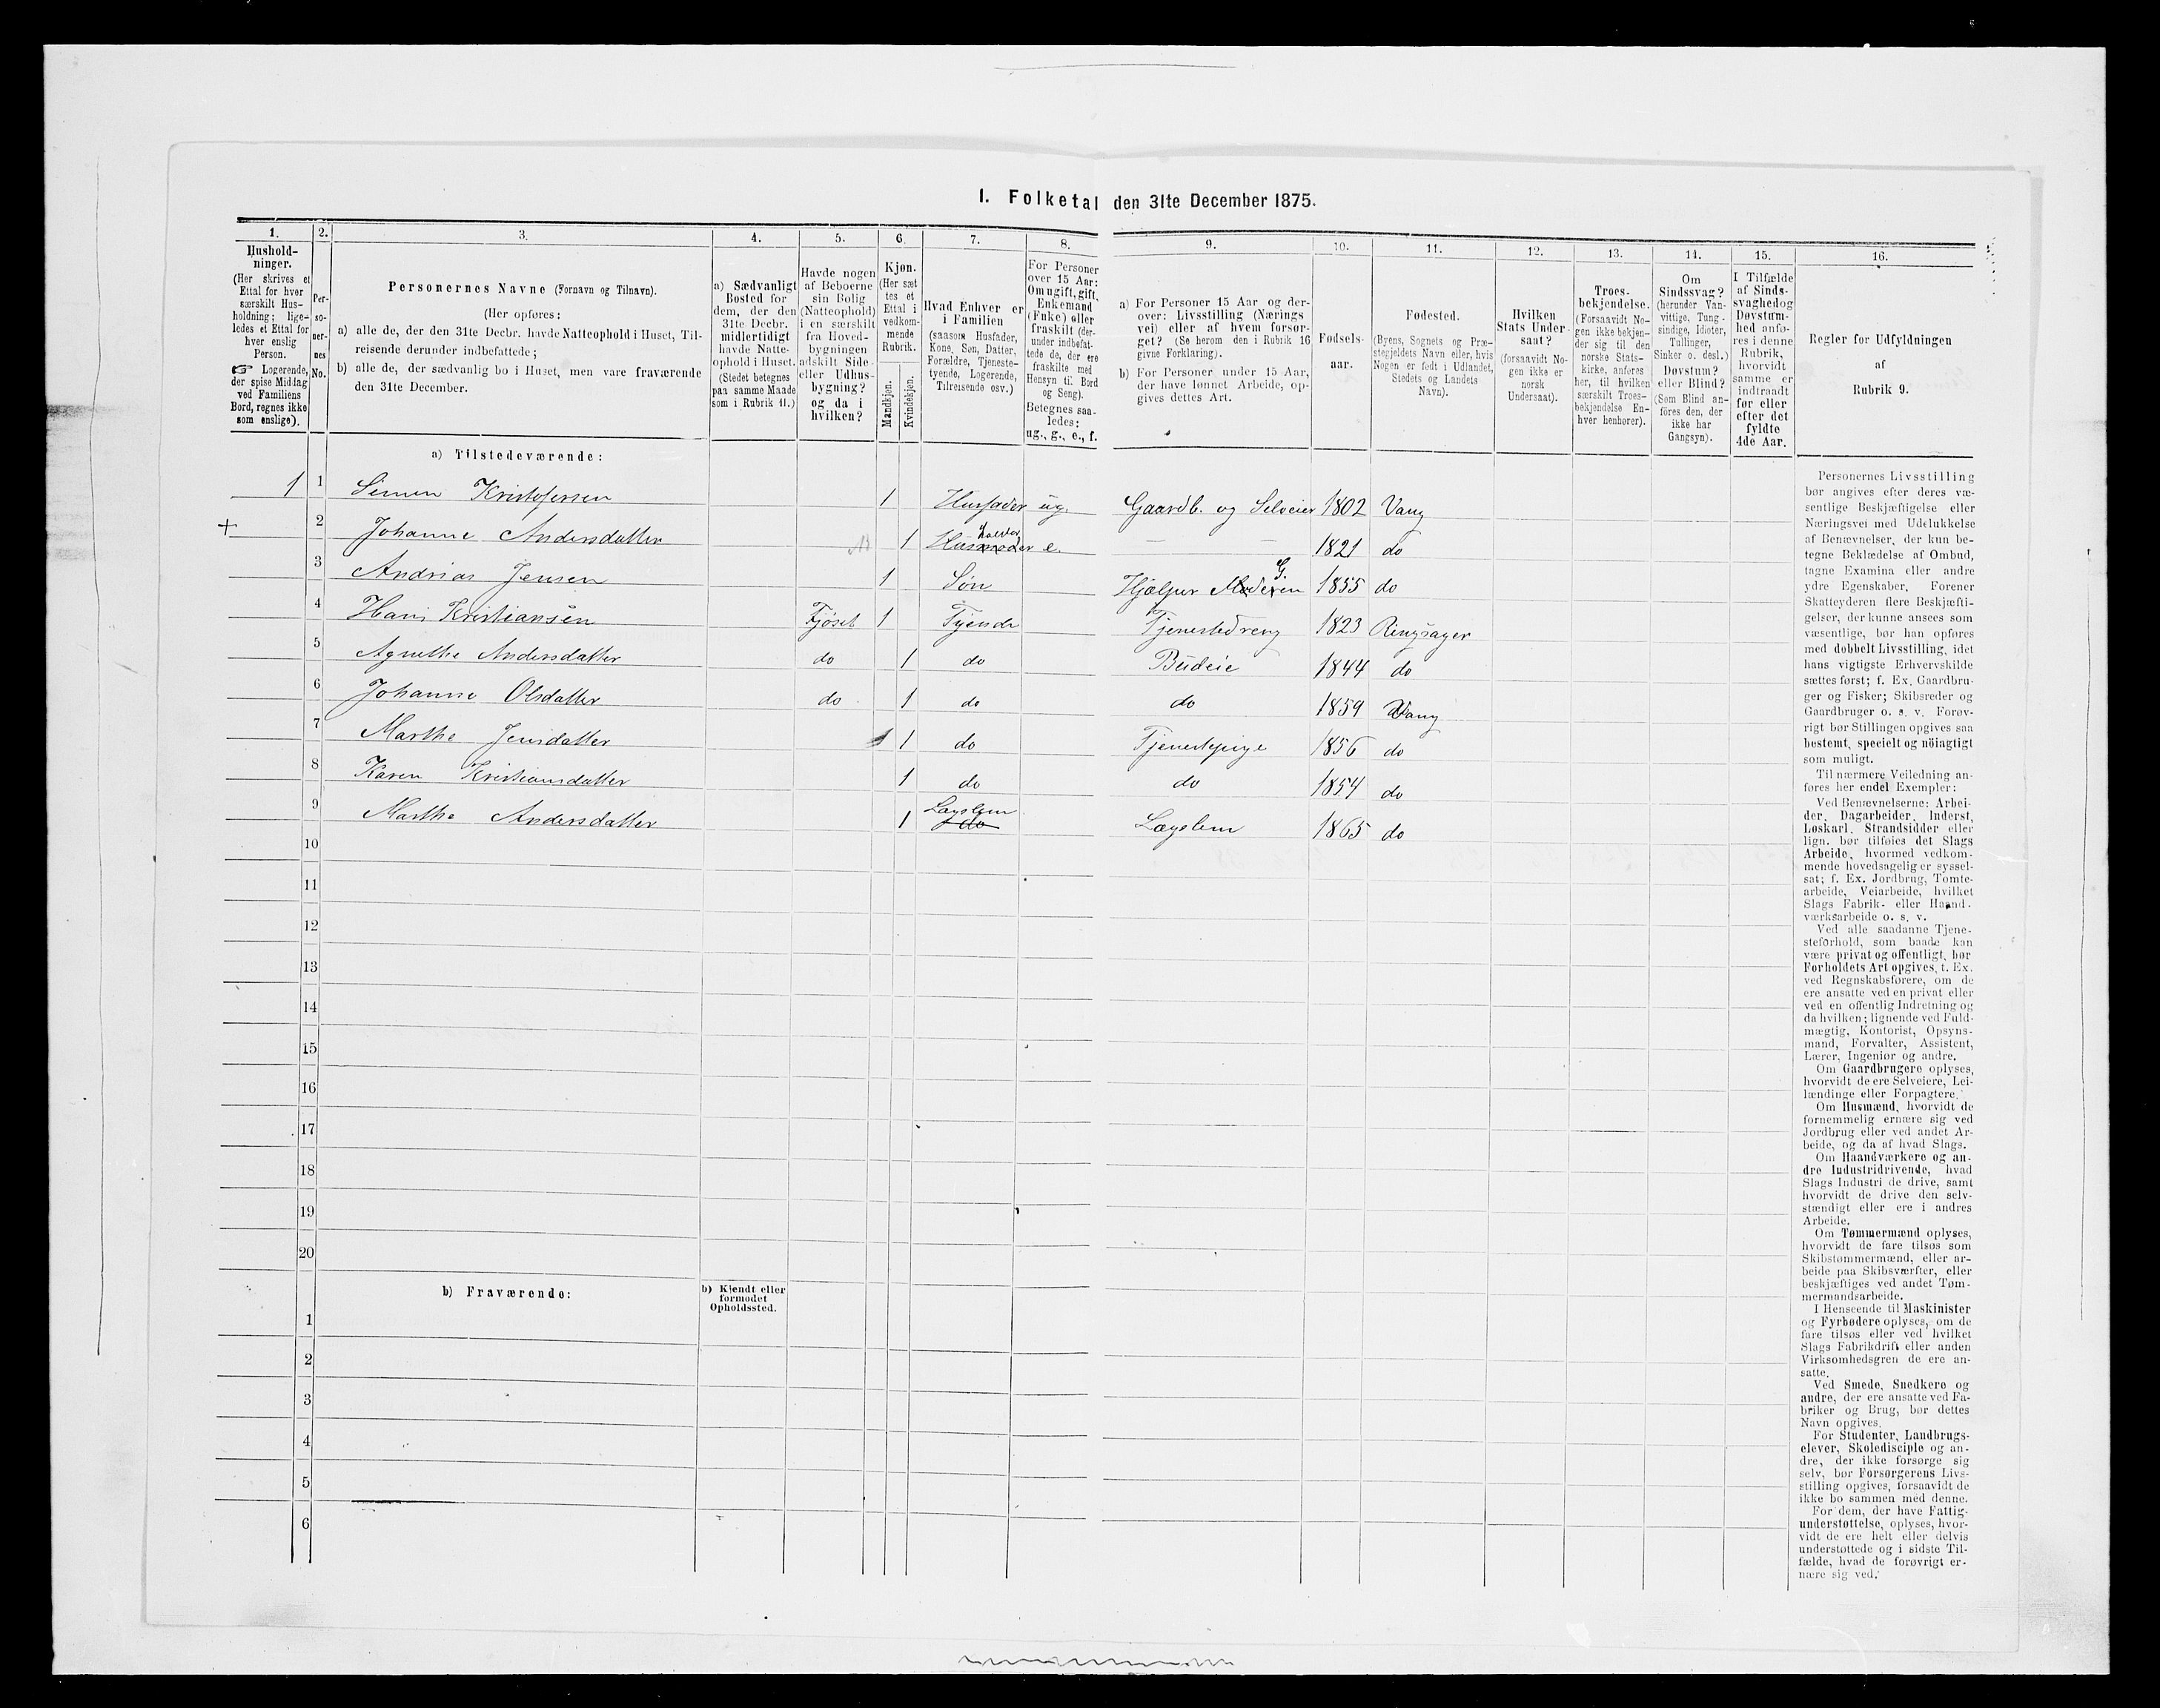 I. Folketal den 31te December 1875.
1.
Hushold-
ninger.
(Her skrives et
Ettal for hver
særskilt Hus-
holdning; lige-
ledes et Ettal for
hver enslig
Person.
☞ Logerende,
der spise Middag
ved Familiens
Bord, regnes ikke
som enslige).
2.
Per-
so-
ner-
nes
No.
3.
Personernes Navne (Fornavn og Tilnavn).
(Her opføres:
a) alle de, der den 31te Decbr. havde Natteophold i Huset, Til-
reisende derunder indbefattede;
b) alle de, der sædvanlig bo i Huset, men vare fraværende
den 31te December.
4.
a) Sædvanligt
Bosted for
dem, der den
31te Decbr.
midlertidigt
havde Natte-
ophold i Huset.
(Stedet betegnes
paa samme Maade
som i Rubrik 11.)
5.
Havde nogen
af Beboerne
sin Bolig
(Natteophold)
i en særskilt
fra Hoved-
bygningen
adskilt Side-
eller Udhus-
bygning?
og da i
hvilken?
6.
Kjøn.
(Her sæt-
tes et
Ettal i
vedkom-
mende
Rubrik.
Mandkjøn.
Kvindekjøn.
7.
Hvad Enhver er
i Familien
(saasom Husfader,
Kone, Søn, Datter,
Forældre, Tjeneste-
tyende, Logerende,
Tilreisende osv.)
8.
For Personer
over 15 Aar:
Om ugift, gift,
Enkemand
(Enke) eller
fraskilt (der-
under indbefat-
tede de, der ere
fraskilte med
Hensyn til Bord
og Seng).
Betegnes saa-
ledes:
ug., g., e., f.
9.
a) For Personer 15 Aar og der-
over: Livsstilling (Nærings-
vei) eller af hvem forsør-
get? (Se herom den i Rubrik 16
givne Forklaring).
b) For Personer under 15 Aar,
der have lønnet Arbeide, op-
gives dettes Art.
10.
Fødsels-
aar.
11.
Fødested.
(Byens, Sognets og Præ-
stegjeldets Navn eller, hvis
Nogen er født i Udlandet,
Stedets og Landets
Navn).
12.
Hvilken
Stats Under-
saat?
(forsaavidt No-
gen ikke er
norsk
Undersaat).
13.
Troes-
bekjendelse.
(Forsaavidt No-
gen ikke bekjen-
der sig til den
norske Stats-
kirke, anføres
her, til hvilken
særskilt Troes-
bekjendelse En-
hver henhører).
14.
Om
Sindssvag?
(herunder Van-
vittige, Tung-
sindige, Idioter,
Tullinger,
Sinker o. desl.)
Døvstum?
eller Blind?
(Som Blind an-
føres den, der
ikke har
Gangsyn).
15.
I Tilfælde
af Sinds-
svaghed og
Døvstum-
hed anfø-
res i denne
Rubrik,
hvorvidt
samme er
indtraadt
før eller
efter det
fyldte
4de Aar.
16.
Regler for Udfyldningen
af
Rubrik 9.
a) Tilstedeværende:
1 1 Simen Kristofersen 1 Husfader ug. Gaardb. og Selveier 1802 Vang
+ 2 Johanne Andersdatter 1 Husholder e. — — 1821 do
3 Andrias Jensen 1 Søn Hjælper Moderen G 1855 do
4 Hans Kristiansen Fjøset 1 Tyende Tjenestedreng 1823 Ringsager
5 Agnethe Andersdatter do 1 do Budeie 1844 do
6 Johanne Olsdatter do 1 do do 1859 Vang
7 Marthe Jensdatter 1 do Tjenestepige 1856 do
8 Karen Kristiansdatter 1 do do 1854 do
9 Marthe Andersdatter 1 Lægslem do Lægslem 1865 do
10
11
12
13
14
15
16
17
18
19
20
b) Fraværende:
b) Kjendt eller
formodet
Opholdssted.
1
2
3
4
5
6
Personernes Livsstilling
bør angives efter deres væ-
sentlige Beskjæftigelse eller
Næringsvei med Udelukkelse
af Benævnelser, der kun be-
tegne Beklædelse af Ombud,
tagne Examina eller andre
ydre Egenskaber. Forener
Skatteyderen flere Beskjæfti-
gelser, der kunne ansees som
væsentlige, bør han opføres
med dobbelt Livsstilling, idet
hans vigtigste Erhvervskilde
sættes først; f. Ex. Gaardbru-
ger og Fisker; Skibsreder og
Gaardbruger o. s. v. Forøv-
rigt bør Stillingen opgives saa
bestemt, specielt og nöiagtigt
som muligt.
Til nærmere Veiledning an-
føres her endel Exempler:
Ved Benævnelserne: Arbei-
der, Dagarbeider, Inderst,
Løskarl, Strandsidder eller
lign. bør tilføies det Slags
Arbeide, hvormed vedkom-
mende hovedsagelig er syssel-
sat; f. Ex. Jordbrug, Tomte-
arbeide, Veiarbeide, hvilket
Slags Fabrik- eller Haand-
værksarbeide o. s. v.
Ved alle saadanne Tjene-
steforhold, som baade kan
være privat og offentligt, bør
Forholdets Art opgives, t. Ex.
ved Regnskabsførere, om de
ere ansatte ved en privat eller
ved en offentlig Indretning og
da hvilken; lignende ved Fuld-
mægtig, Kontorist, Opsyns-
mand, Forvalter, Assistent,
Lærer, Ingeniør og andre.
Om Gaardbrugere oplyses,
hvorvidt de ere Selveiere, Lei-
lændinge eller Forpagtere.
Om Husmænd, hvorvidt de
fornemmelig ernære sig ved
Jordbrug eller ved andet Ar-
beide, og da af hvad Slags.
Om Haandværkere og an-
dre Industridrivende, hvad
Slags Industri de drive, samt
hvorvidt de drive den selv-
stændigt eller ere i andres
Arbeide.
Om Tømmermænd oplyses,
hvorvidt de fare tilsøs som
Skibstømmermænd, eller ar-
beide paa Skibsværfter, eller
beskjæftiges ved andet Tøm-
mermandsarbeide.
I Henseende til Maskinister
og Fyrbødere oplyses, om de
fare tilsøs eller ved hvilket
Slags Fabrikdrift eller anden
Virksomhedsgren de ere an-
satte.
Ved Smede, Snedkere og
andre, der ere ansatte ved Fa-
briker og Brug, bør dettes
Navn opgives.
For Studenter, Landbrugs-
elever, Skoledisciple og an-
dre, der ikke forsørge sig
selv, bør Forsørgerens Livs-
stilling opgives, forsaavidt de
ikke bo sammen med denne.
For dem, der have Fattig-
understøttelse, oplyses, hvor-
vidt de ere helt eller delvis
understøttede og i sidste Til-
fælde, hvad de forøvrigt er-
nære sig ved.